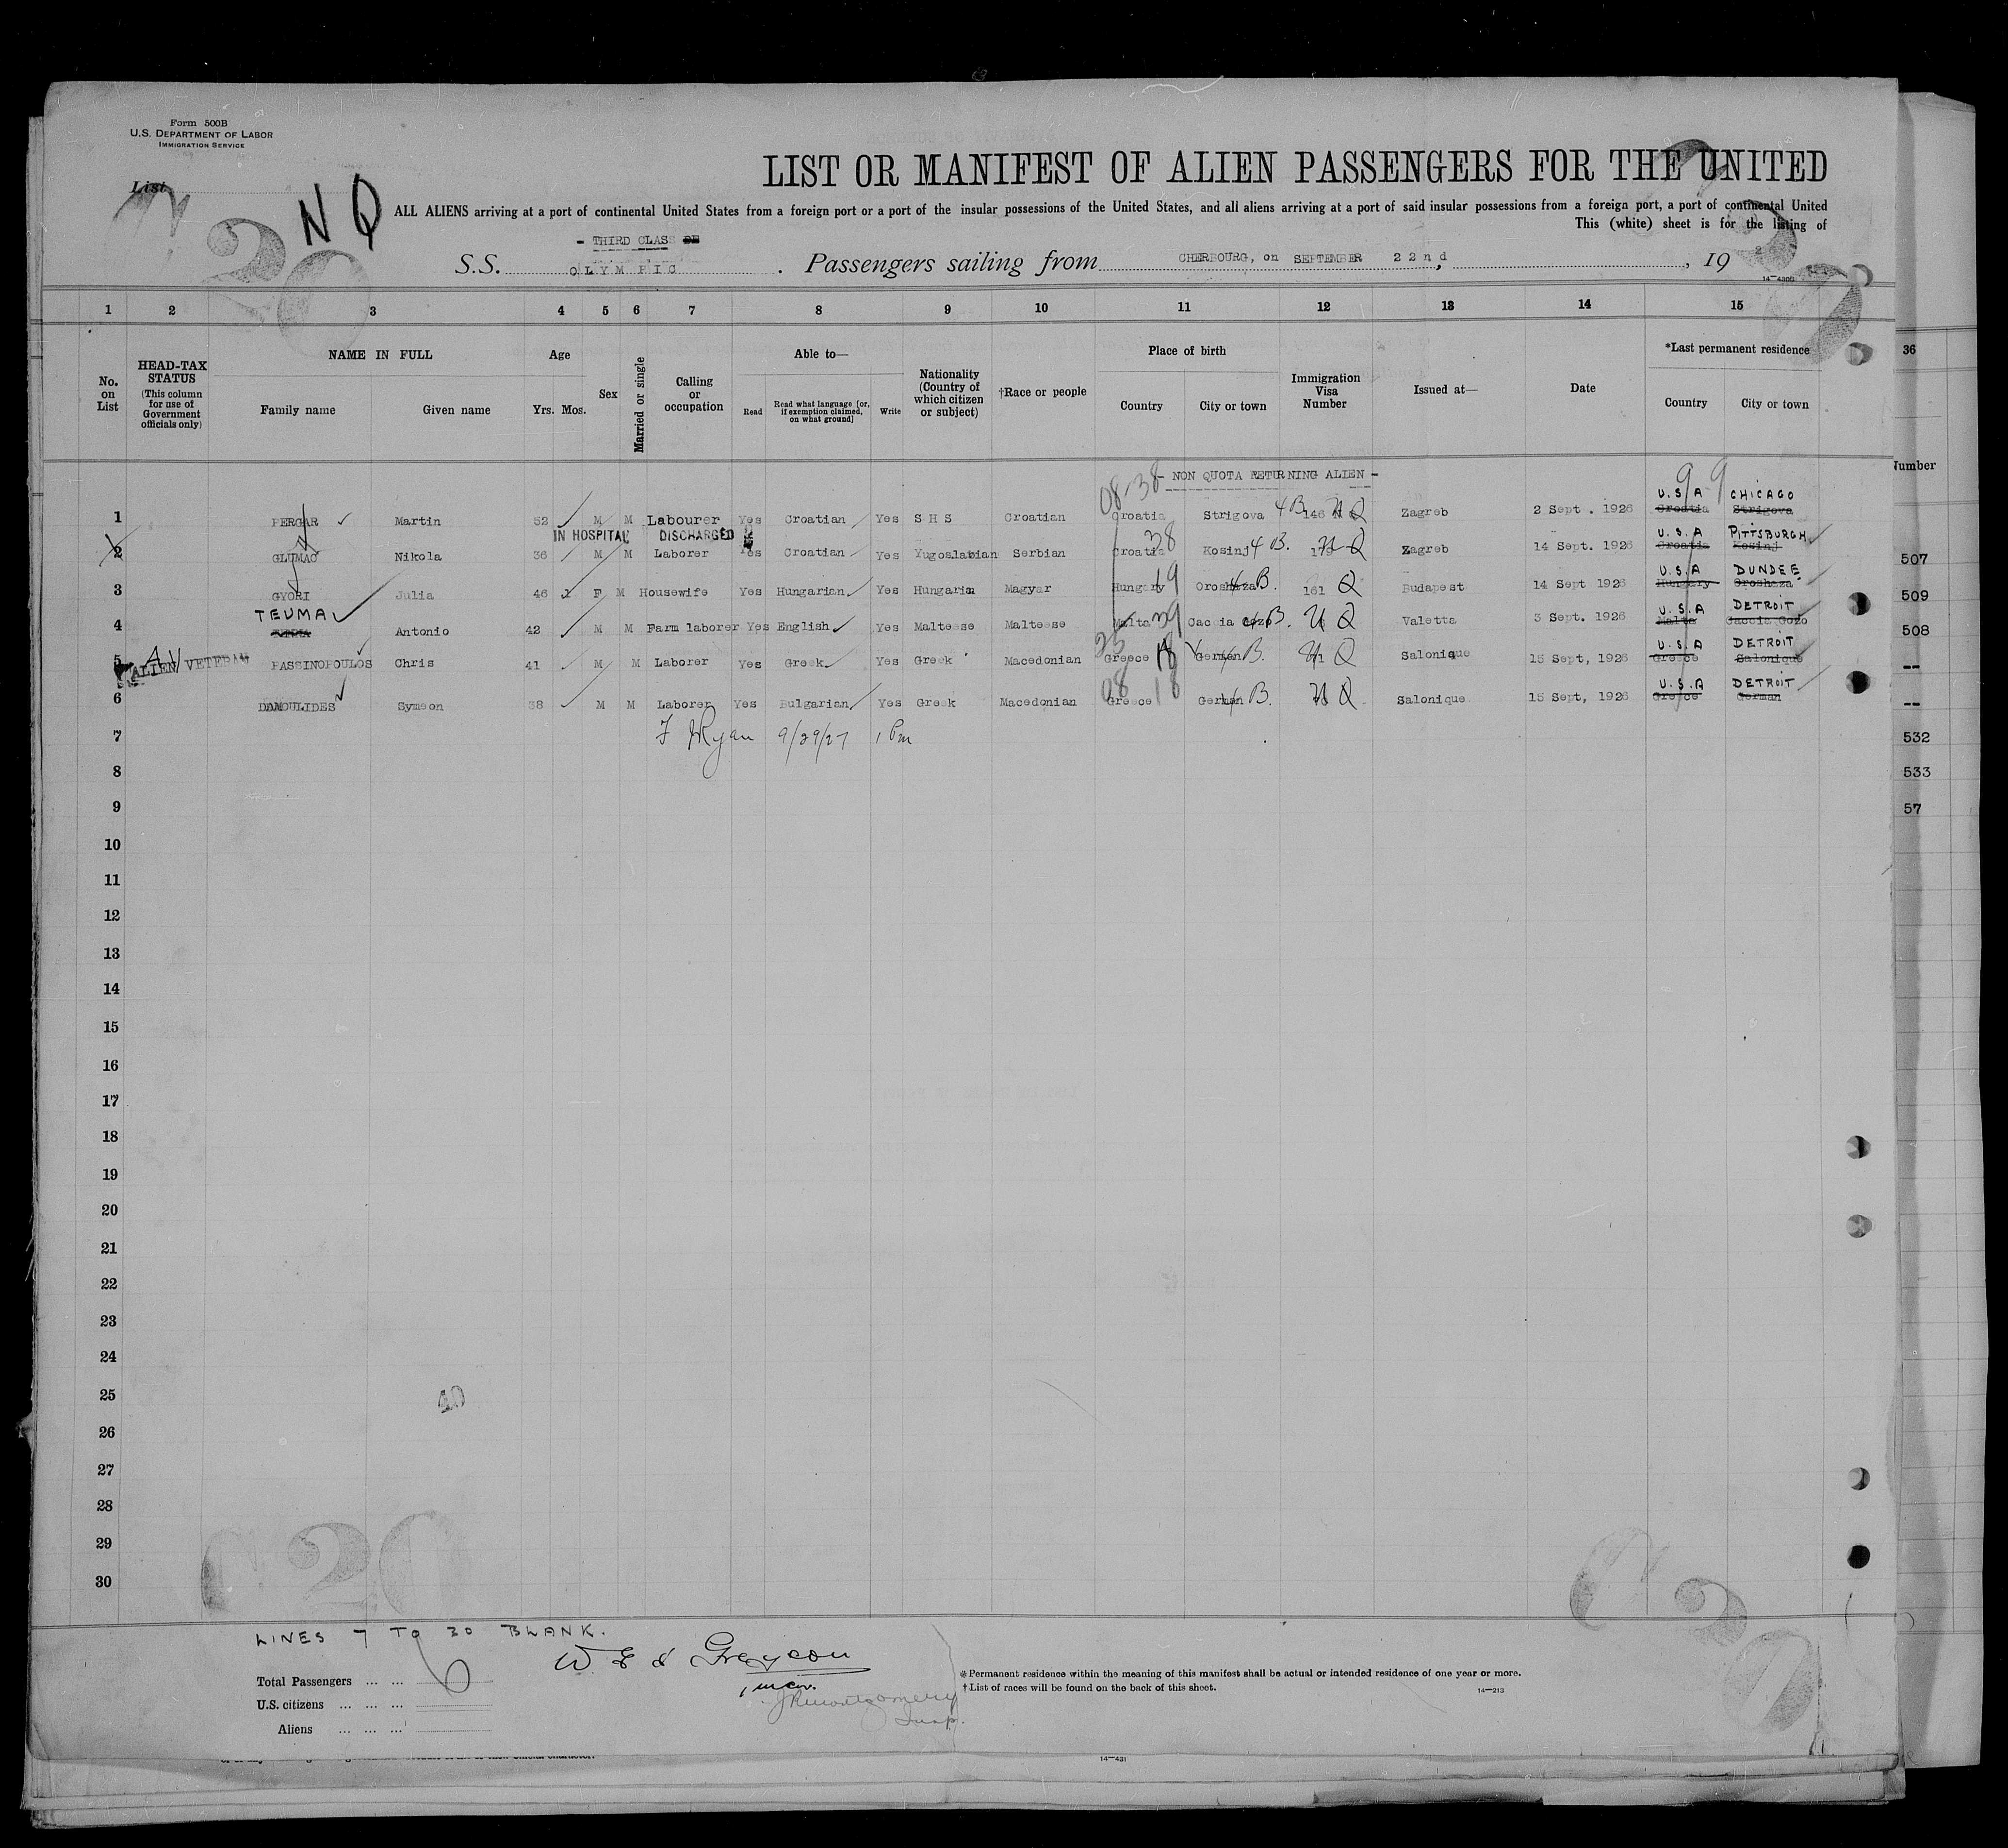 Form 500B
U.S. DEPARTMENT OF LABOR
IMMIGRATION SERVICE
List
N Q
LIST OR MANIFEST OF ALIEN PASSENGERS FOR THE UNITED
ALL ALIENS arriving at a port of continental United States from a foreign port or a port of the insular possessions of the United States, and all aliens arriving at a port of said insular possessions from a foreign port, a port of continental United
This (white) sheet is for the listing of
- THIRD CLASS
S.S. OLYMPIC . Passengers sailing from CHERBOURG, on SEPTEMBER 22nd, 19
14—430B
1 2 3 4 5 6 7 8 9 10 11 12 13 14 15
No. on List
HEAD-TAX STATUS (This column for use of Government officials only)
NAME IN FULL
Family name Given name
Age
Yrs. Mos.
Sex
Married or single
Calling or occupation
Able to—
Read Read what language [or, if exemption claimed, on what ground] Write
Nationality (Country of which citizen or subject)
†Race or people
Place of birth
Country City or town
Immigration Visa Number
Issued at—
Date
*Last permanent residence
Country City or town
36
Number
- NON QUOTA RETURNING ALIEN -
08-38
9 9
U.S.A CHICAGO
1 PERGAR Martin 52 M M Labourer Yes Croatian Yes S H S Croatian Croatia Strigova 4B 146 NQ Zagreb 2 Sept . 1926 Croatia Strigova
IN HOSPITAL DISCHARGED
U.S.A PITTSBURGH
2 GLUMAC Nikola 36 M M Laborer Yes Croatian Yes Yugoslabian Serbian Croatia 38 Kosinj 4B. Q Zagreb 14 Sept. 1926 Croatia Kosinj
507
U.S.A DUNDEE
3 GYORI Julia 46 F M Housewife Yes Hungarian Yes Hungarian Magyar Hungary 19 Oroshaza 4B. 161 Q Budapest 14 Sept 1926 Hungary Oroshaza
509
TEUMA
U.S.A DETROIT
4 Antonio 42 M M Farm laborer Yes English Yes Malteese Malteese Malta 39 Caccia Gozo B. N Q Valetta 3 Sept. 1926 Malta Caccia Gozo
508
AV
U.S.A DETROIT
5 ALIEN VETERAN PASSINOPOULOS Chris 41 M M Laborer Yes Greek Yes Greek Macedonian Greece 18 German 4B. N Q Salonique 15 Sept, 1926 Greece Salonique
--
U.S.A DETROIT
6 DAMOULIDES Symeon 38 M M Laborer Yes Bulgarian Yes Greek Macedonian 08 Greece 18 German 4B. N Q Salonique 15 Sept, 1926 Greece German
--
7 F J Ryan 9/29/27 1 Pm
532
8
533
9
57
10
11
12
13
14
15
16
17
18
19
20
21
22
23
24
25
40
26
27
28
29
30
C20
C20
LINES 7 TO 30 BLANK.
Total Passengers ... ... 6
U.S. citizens ... ... ...
Aliens ... ... ...
JR Montgomery
Insp.
*Permanent residence within the meaning of this manifest shall be actual or intended residence of one year or more.
†List of races will be found on the back of this sheet.
14—213
14—431